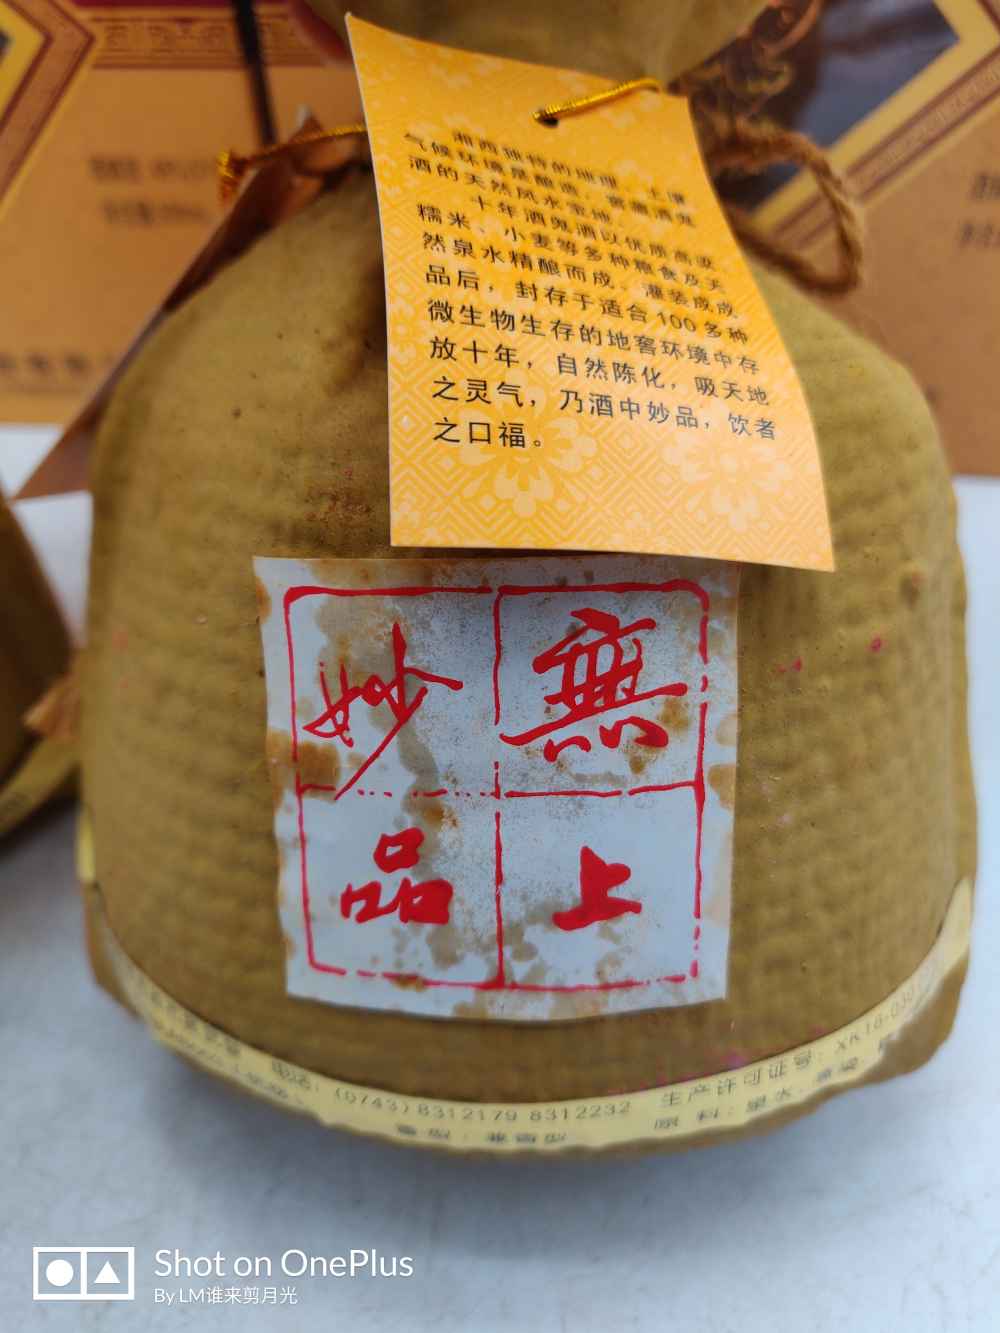 湘西独特的地理、土壤、
气候环境是酿造、窖藏酒鬼
酒的天然风水宝地。
十年酒鬼酒以优质高粱、
糯米、小麦等多种粮食及天
然泉水精酿而成。灌装成成
品后，封存于适合100多种
微生物生存的地窖环境中存
放十年，自然陈化，吸天地
之灵气，乃酒中妙品，饮者
之口福。
無上
妙品
电话：(0743)8312179 8312232
生产许可证号：XK16-
Shot on OnePlus
By LM谁来剪月光